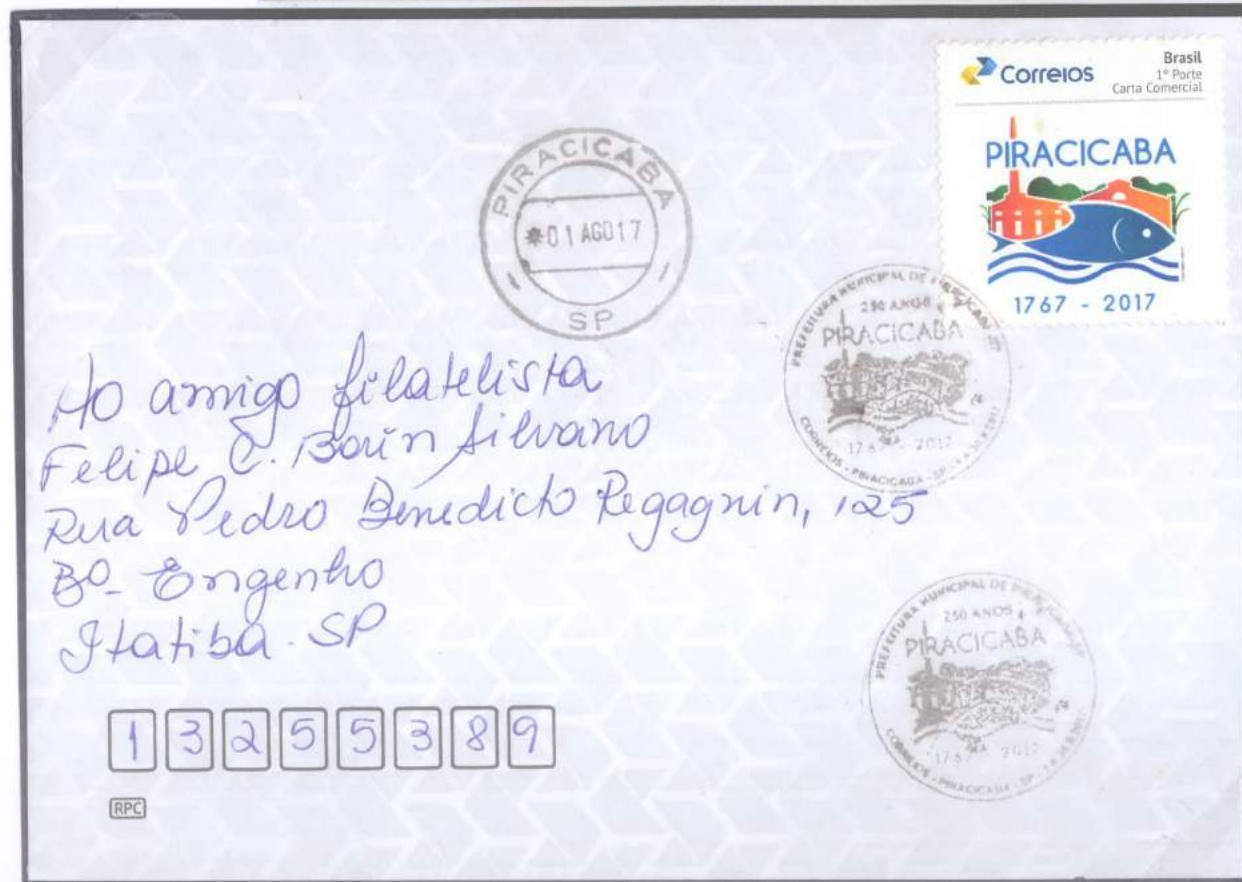 Correios
Brasil
1º Porte
Carta Comercial
PIRACICABA
1767 - 2017
PIRACICABA
*01AGO17
SP
PREFEITURA MUNICIPAL DE
250 ANOS
PIRACICABA
1767 - 2017
CORREIOS - PIRACICABA - SP
Ao amigo filatelista
Felipe C. Borin Silvano
Rua Pedro Benedicto Regagnin, 125
Bº- Engenho
Itatiba - SP
PREFEITURA MUNICIPAL DE
250 ANOS
PIRACICABA
1767 2017
CORREIOS - PIRACICABA - SP
13255389
RPC